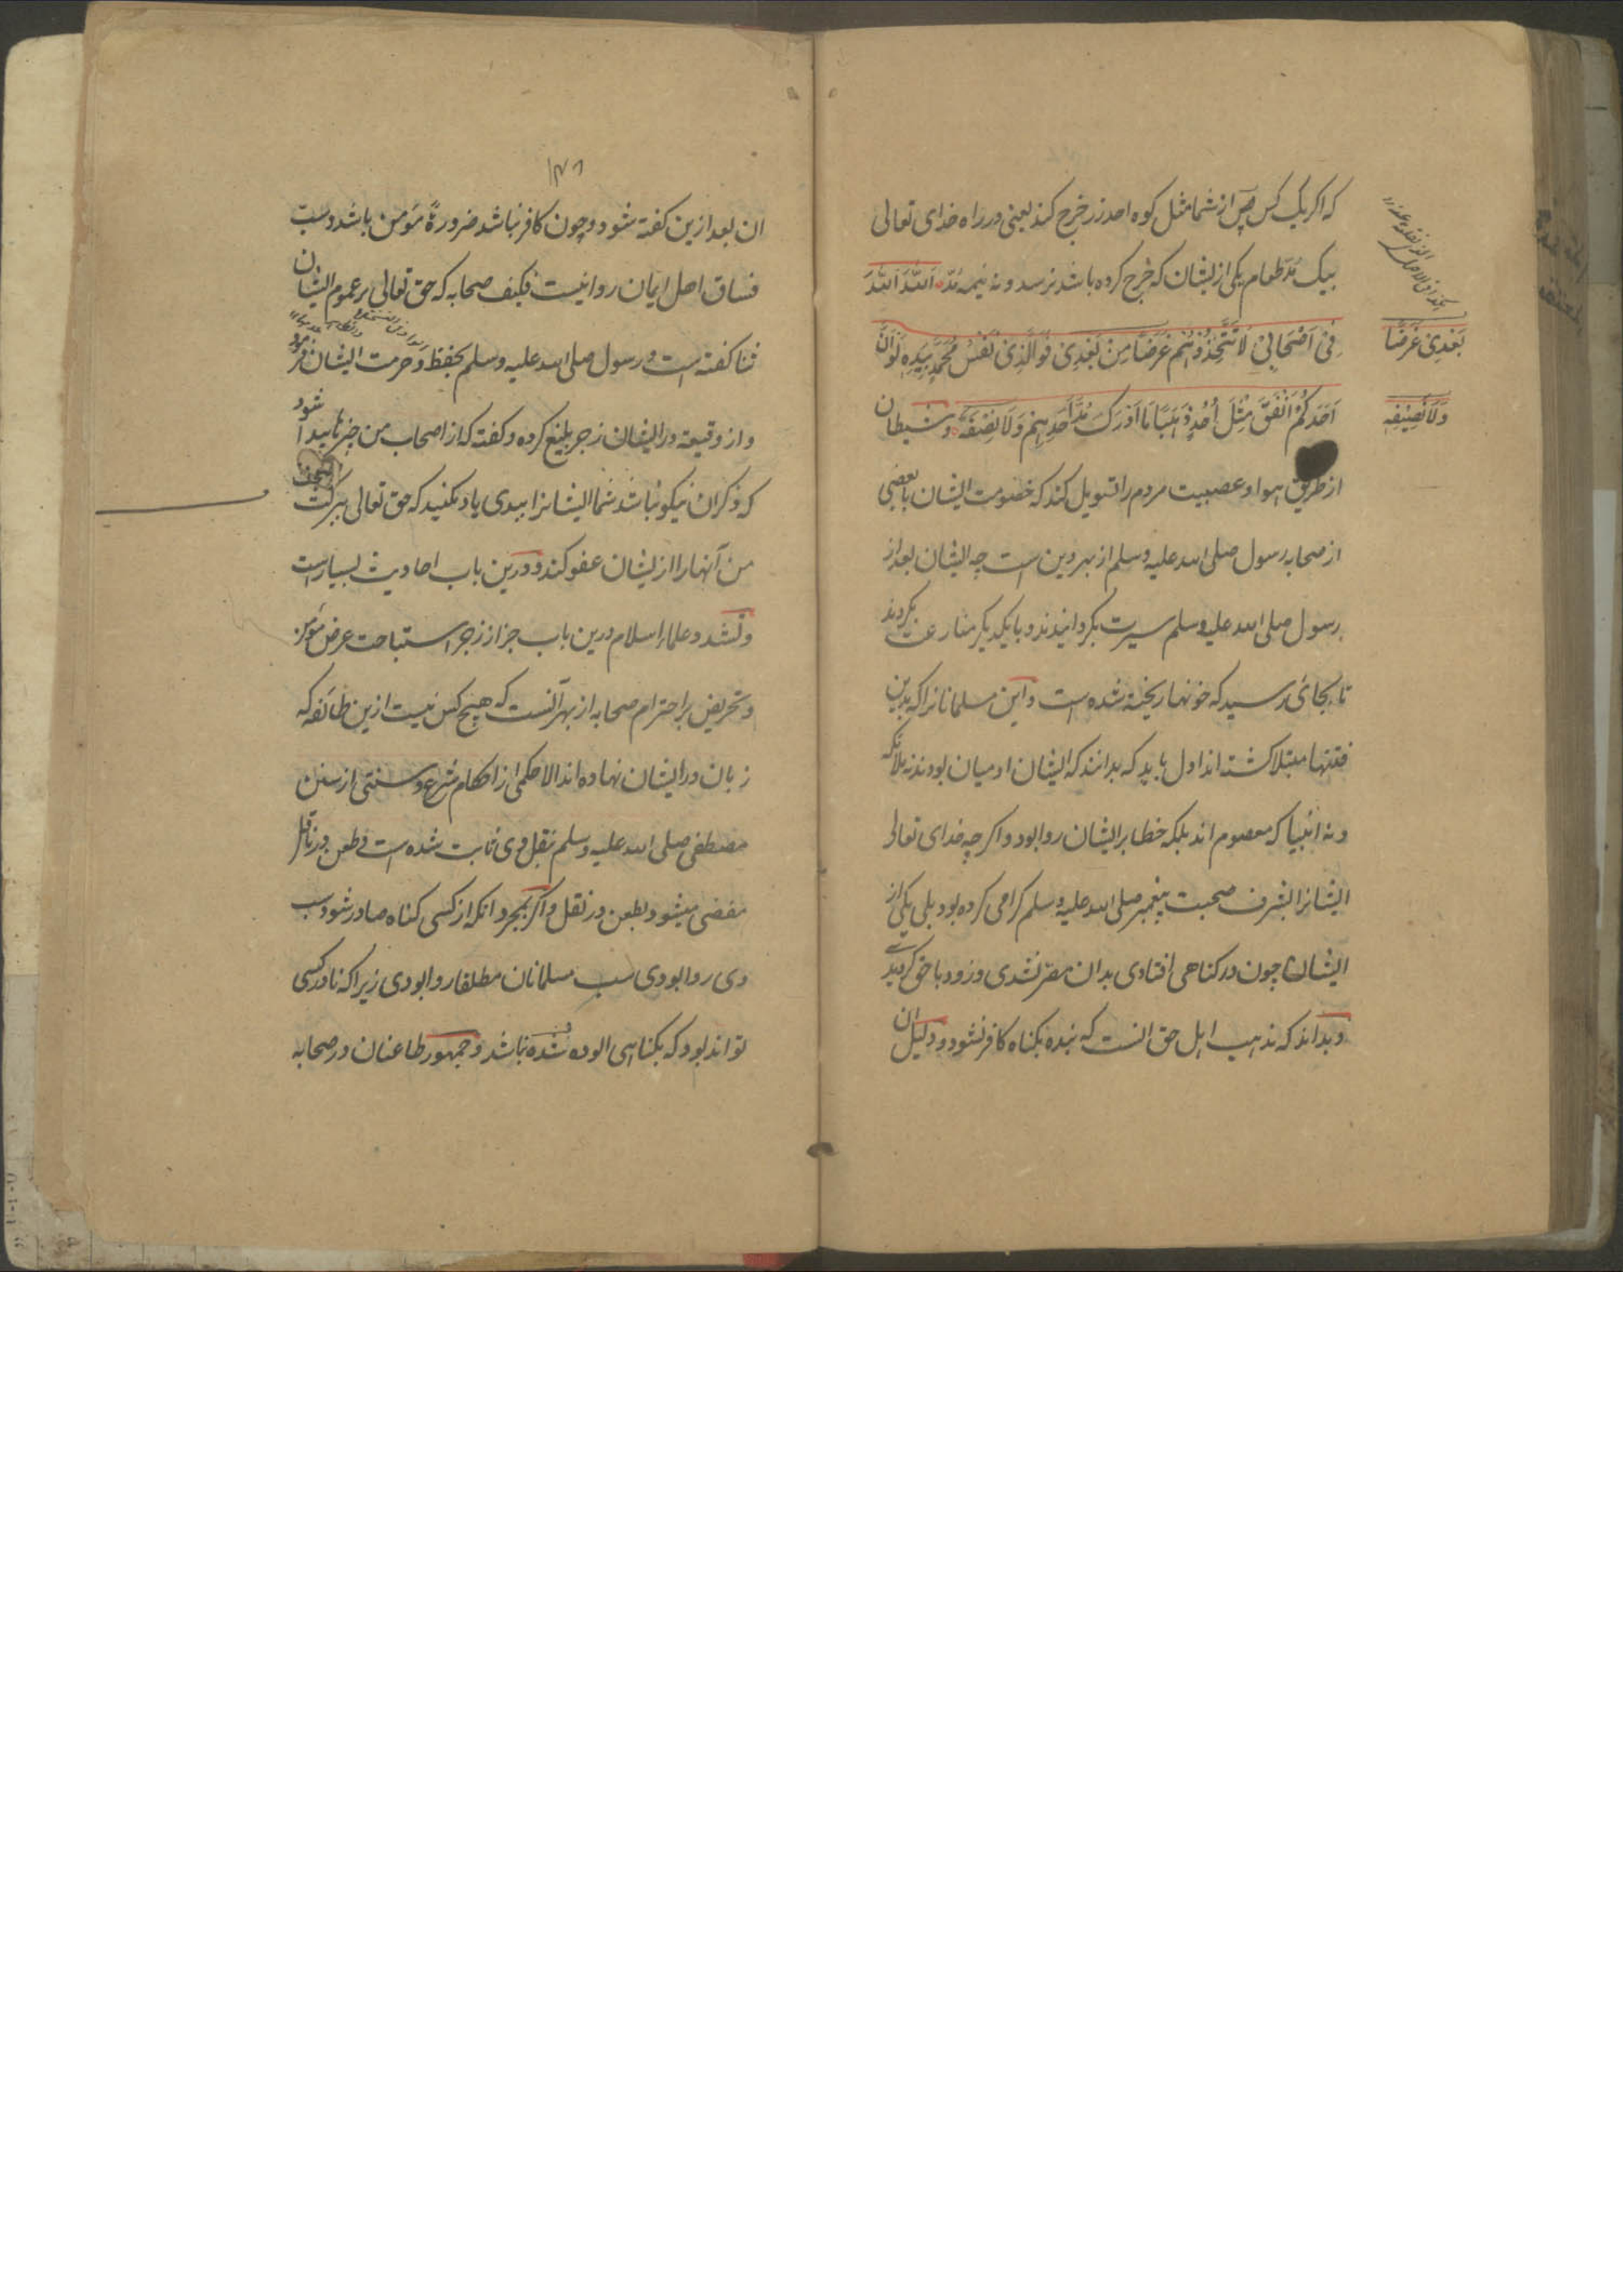 که اکر یک کس از شما مثل کوه احد زر خرج کند یعنی در راه خدای تعالی
بیک مُدّ طعام یکی از یشان که خرج کرده باشد نرسد و نه نیمه مُدّ اَللّٰهَ اَللّٰهَ
فِیْ اَصْحَابِیْ لَا تَتَّخِذُوْهُمْ غَرَضًا مِنْ بَعْدِیْ فَوَالَّذِیْ نَفْسُ مُحَمَّدٍ بِیَدِهٖ لَوْ اَنَّ
بَعْدِیْ غَرَضًا
اَحَدَکُمْ اَنْفَقَ مِثْلَ اُحُدٍ ذَهَبًا مَا اَدْرَکَ مُدَّ اَحَدِهِمْ وَلَا نَصِیْفَهٗ و شیطان
وَلَا نَصِیْفِه
از طریق هوا و عصبیت مردم را تسویل کند که خصومت ایشان با بعضی
از صحابه رسول صلی الله علیه وسلم از بهر دین است چه ایشان بعد از
رسول صلی الله علیه وسلم سیرت بکردانیدند و با یکدیکر منازعت بکردند
تا بجائ رسید که خونها ریخته شده است و این مسلمانانرا که بدین
فتنها مبتلا کشته اند اول باید که بدانند که ایشان ادمیان بودند نه ملائکه
و نه انبیا که معصوم اند بلکه خطا بر ایشان روا بود و اکر چه خدای تعالی
ایشانرا بشرف صحبت پیغمبر صلی الله علیه وسلم کرامی کرده بود بلی یکی از
ایشان چون در کناهی افتادی بدان مصر نشدی و زود با حق کردیدے
و بداند که مذهب اهل حق انست که بنده بکناه کافر نشود و دلیل ان
۱۴۸
ان بعد ازین کفته شود و چون کافر نباشد ضرورةً مؤمن باشد و سب
فساق اهل ایمان روا نیست فکیف صحابه که حق تعالی بر عموم ایشان
ثنا کفته است و رسول صلی الله علیه وسلم بحفظ و حرمت ایشان فرمود
و از وقیعة در ایشان زجر بلیغ کرده و کفته که از اصحاب من چیزها پیدا شود
که ذکر ان نیکو نباشد شما ایشانرا ببدی یاد مکنید که حق تعالی ببرکت
من آنها را از یشان عفو کند و درین باب احادیث بسیار است
و نشد و علماء اسلام درین باب جز از زجر استباحت عرض مؤمن
و تحریض بر احترام صحابه از بهر آنست که هیچ کس نیست ازین طائفه که
زبان در ایشان نهاده اند الا حکمی از احکام شرع و سنتی از سنن
مصطفی صلی الله علیه وسلم بنقل وی ثابت شده است و طعن در ناقل
مفضی میشود بطعن در نقل و اکر بمجرد انکه از کسی کناه صادر شود سب
وی روا بودی سب مسلمانان مطلقا روا بودی زیرا که نادر کسی
تواند بود که بکناهی الوده شده نباشد و جمهور طاعنان در صحابه